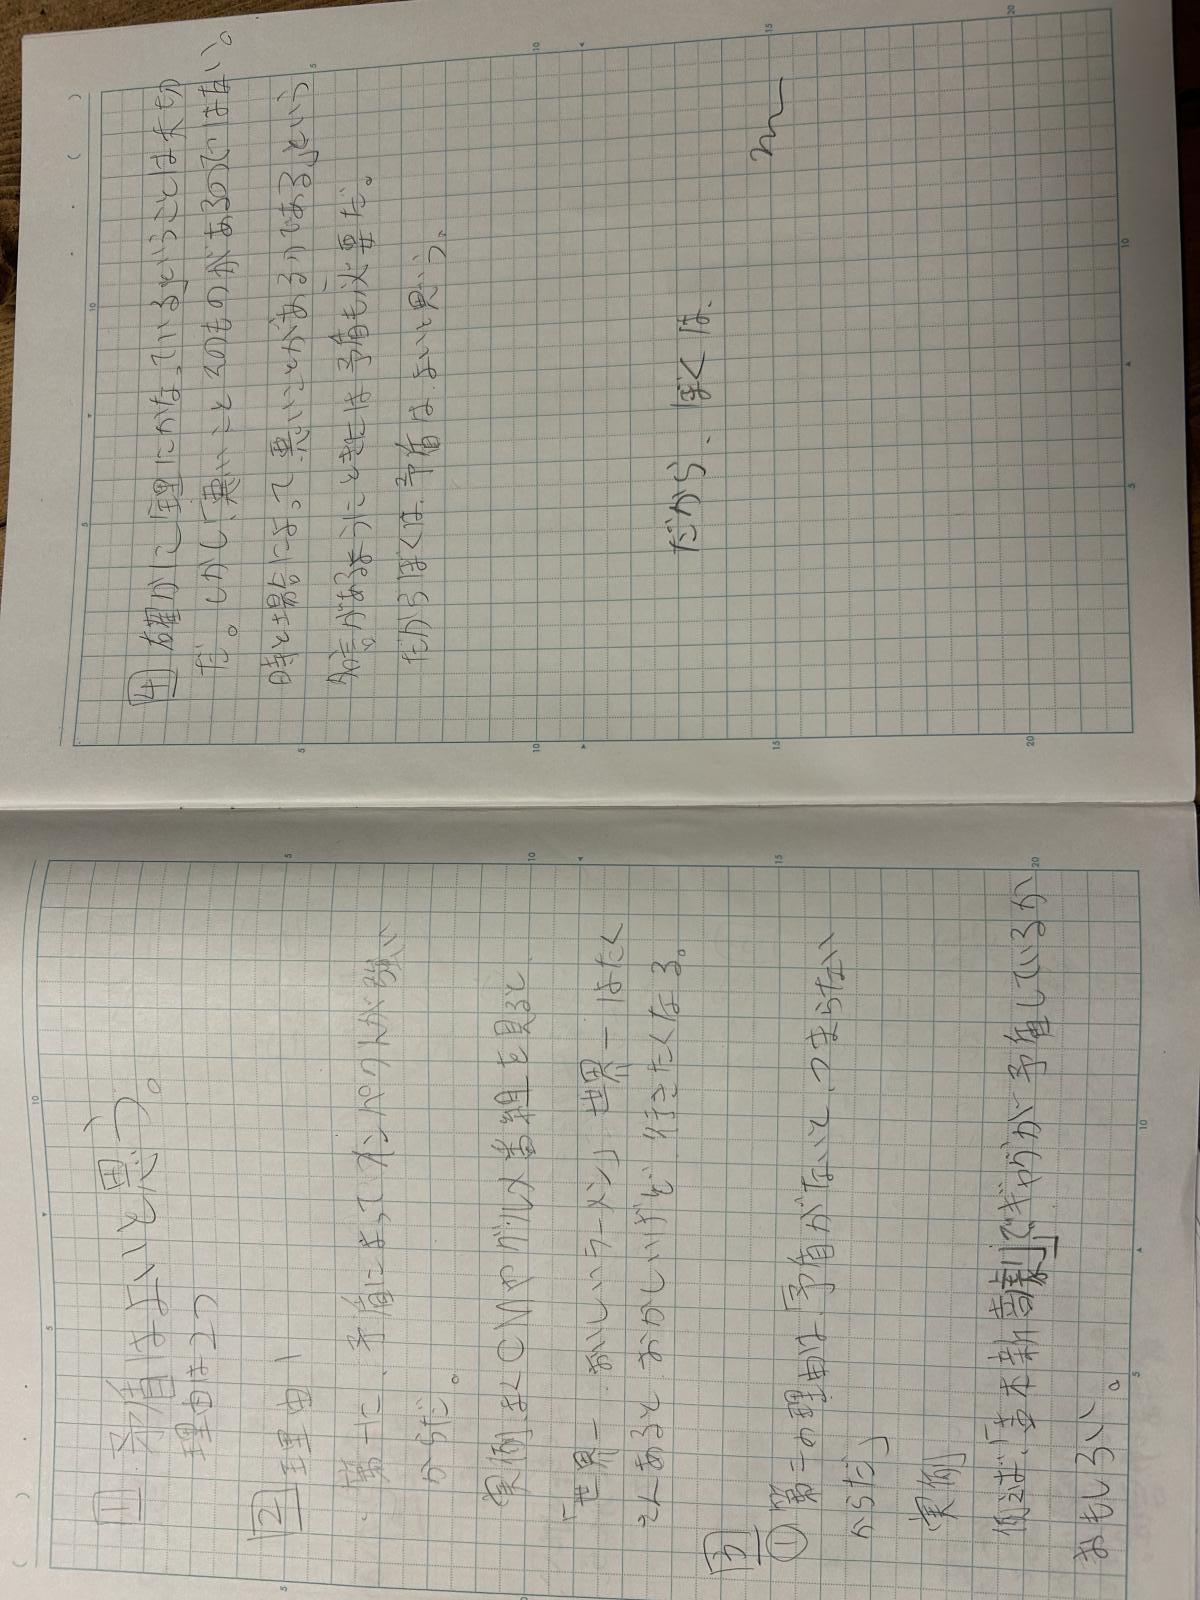 1 矛盾はよいと思う。
理由は2つ
2 理由1
第一に、矛盾によってインパクトが強い
からだ。
実例 よくCMやグルメ番組を見ると
「世界一 おいしいラーメン」世界一はたく
さんあると おかしいけど 行きたくなる。
3
① 第二の理由は「矛盾がないと、つまらない
からだ」
実例
例えば、「吉本新喜劇」でギャグが 矛盾しているが
おもしろい。
4 確かに「理にかなっているということは大切
だ。しかし「悪いこと そのものがあるのではない。
時と場合によって 悪いことがあるのである」という
名言があるように ときには 矛盾も必要だ。
だから ぼくは、矛盾は よいと思う。
だから、ぼくは、
5
10
15
20
5
10
15
20
5
10
5
10
5
10
15
20
5
10
15
20
5
10
5
10